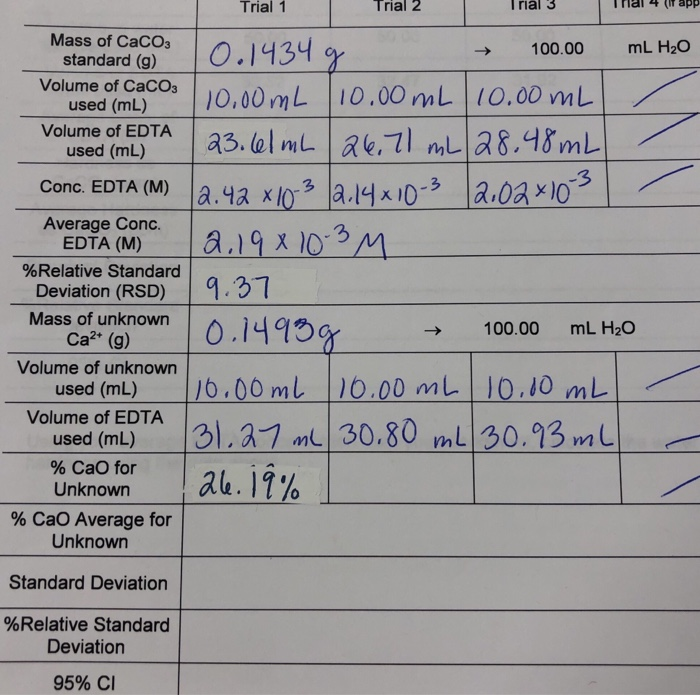 Trial 1 Trial 2 Trial 3 Trial 4 (if app
Mass of CaCO₃ standard (g) 0.1434 g → 100.00 mL H₂O
Volume of CaCO₃ used (mL) 10.00 mL 10.00 mL 10.00 mL
Volume of EDTA used (mL) 23.61 mL 26.71 mL 28.48 mL
Conc. EDTA (M) 2.42 x10⁻³ 2.14 x 10⁻³ 2.02 x 10⁻³
Average Conc. EDTA (M) 2.19 x 10⁻³ M
%Relative Standard Deviation (RSD) 9.37
Mass of unknown Ca²⁺ (g) 0.1493g → 100.00 mL H₂O
Volume of unknown used (mL) 10.00 mL 10.00 mL 10.10 mL
Volume of EDTA used (mL) 31.27 mL 30.80 mL 30.93 mL
% CaO for Unknown 26.19%
% CaO Average for Unknown
Standard Deviation
%Relative Standard Deviation
95% CI